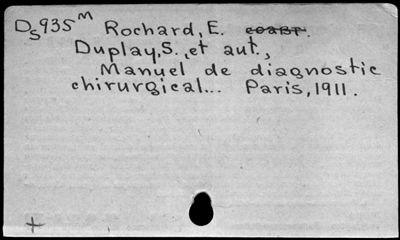 Ds935M Rochard, E. coавт.
Duplay, S., et aut.,
Manuel de diagnostic
chirurgical... Paris, 1911.
+